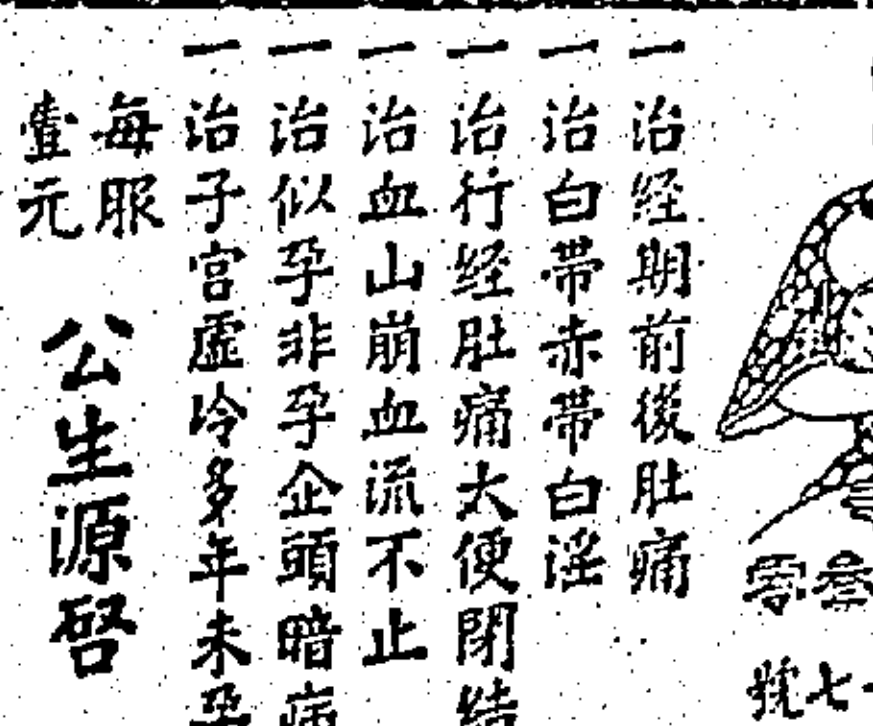 一治经期前後肚痛
一治白带赤带白淫
一治行经肚痛大便閉结
一治血山崩血流不止
一治似孕非孕企頭暗病
一治子宫虚冷多年未孕
每服
壹元
公生源啓